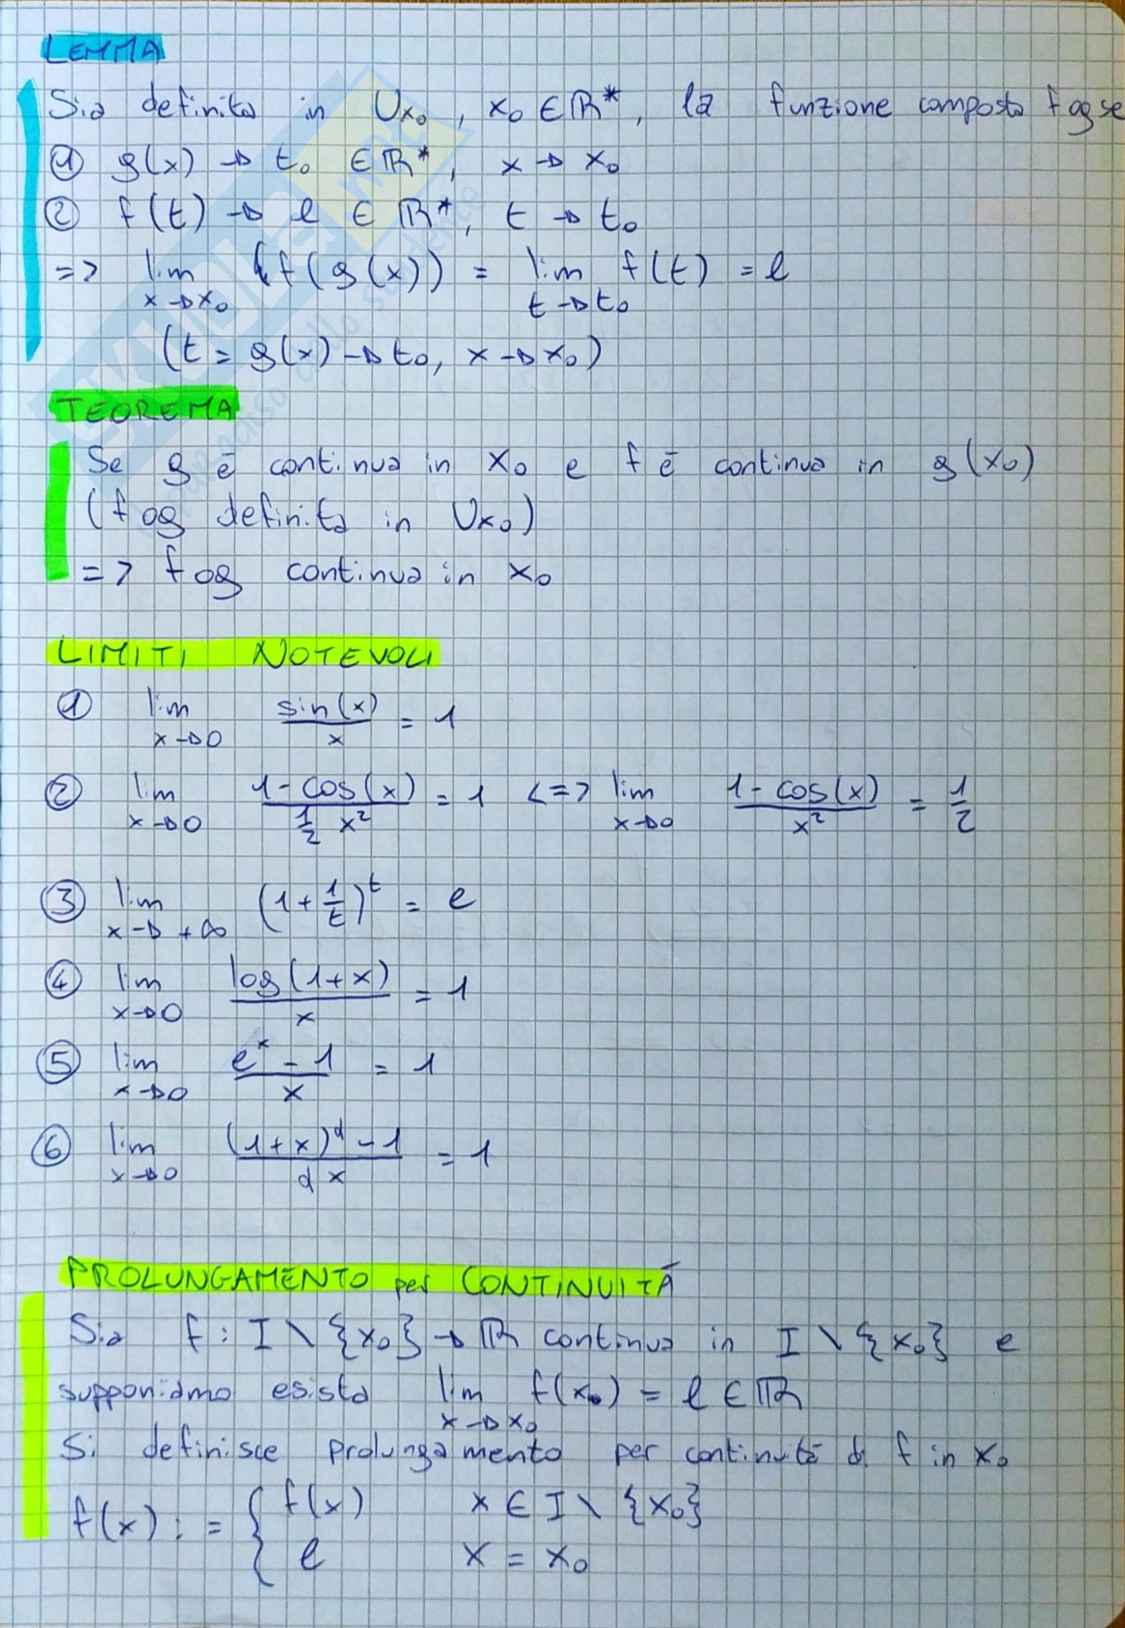 LEMMA
Sia definita in Ux₀, x₀ ∈ ℝ*, la funzione composta f∘g se
① g(x) → t₀ ∈ ℝ*, x → x₀
② f(t) → l ∈ ℝ*, t → t₀
=> lim x→x₀ f(g(x)) = lim t→t₀ f(t) = l
(t = g(x) → t₀, x → x₀)
TEOREMA
Se g è continua in x₀ e f è continua in g(x₀)
(f∘g definita in Ux₀)
=> f∘g continua in x₀
LIMITI NOTEVOLI
① lim x→0 sin(x)/x = 1
② lim x→0 (1-cos(x))/(1/2 x²) = 1 <=> lim x→0 (1-cos(x))/x² = 1/2
③ lim x→+∞ (1+1/t)ᵗ = e
④ lim x→0 log(1+x)/x = 1
⑤ lim x→0 (eˣ-1)/x = 1
⑥ lim x→0 ((1+x)^α-1)/(αx) = 1
PROLUNGAMENTO per CONTINUITÀ
Sia f: I \ {x₀} → ℝ continua in I \ {x₀} e
supponiamo esista lim x→x₀ f(x₀) = l ∈ ℝ
Si definisce prolungamento per continuità di f in x₀
f(x) := { f(x) x ∈ I \ {x₀}
l x = x₀
SKUOLA